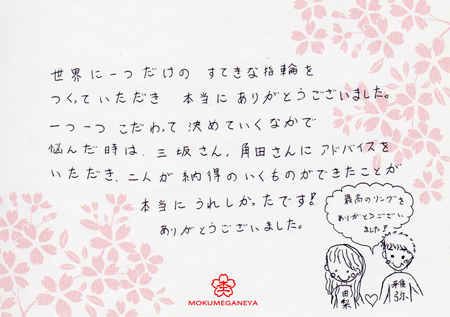 世界に一つだけの すてきな指輪を
つくっていただき 本当にありがとうございました。
一つ一つ こだわって 決めていくなかで
悩んだ時は、三坂さん，角田さんに アドバイスを
いただき、二人が 納得のいくものができたことが
本当に うれしかったです！
ありがとうございました。
最高のリングを
ありがとうござい
ました!!
雅弥
MOKUMEGANEYA